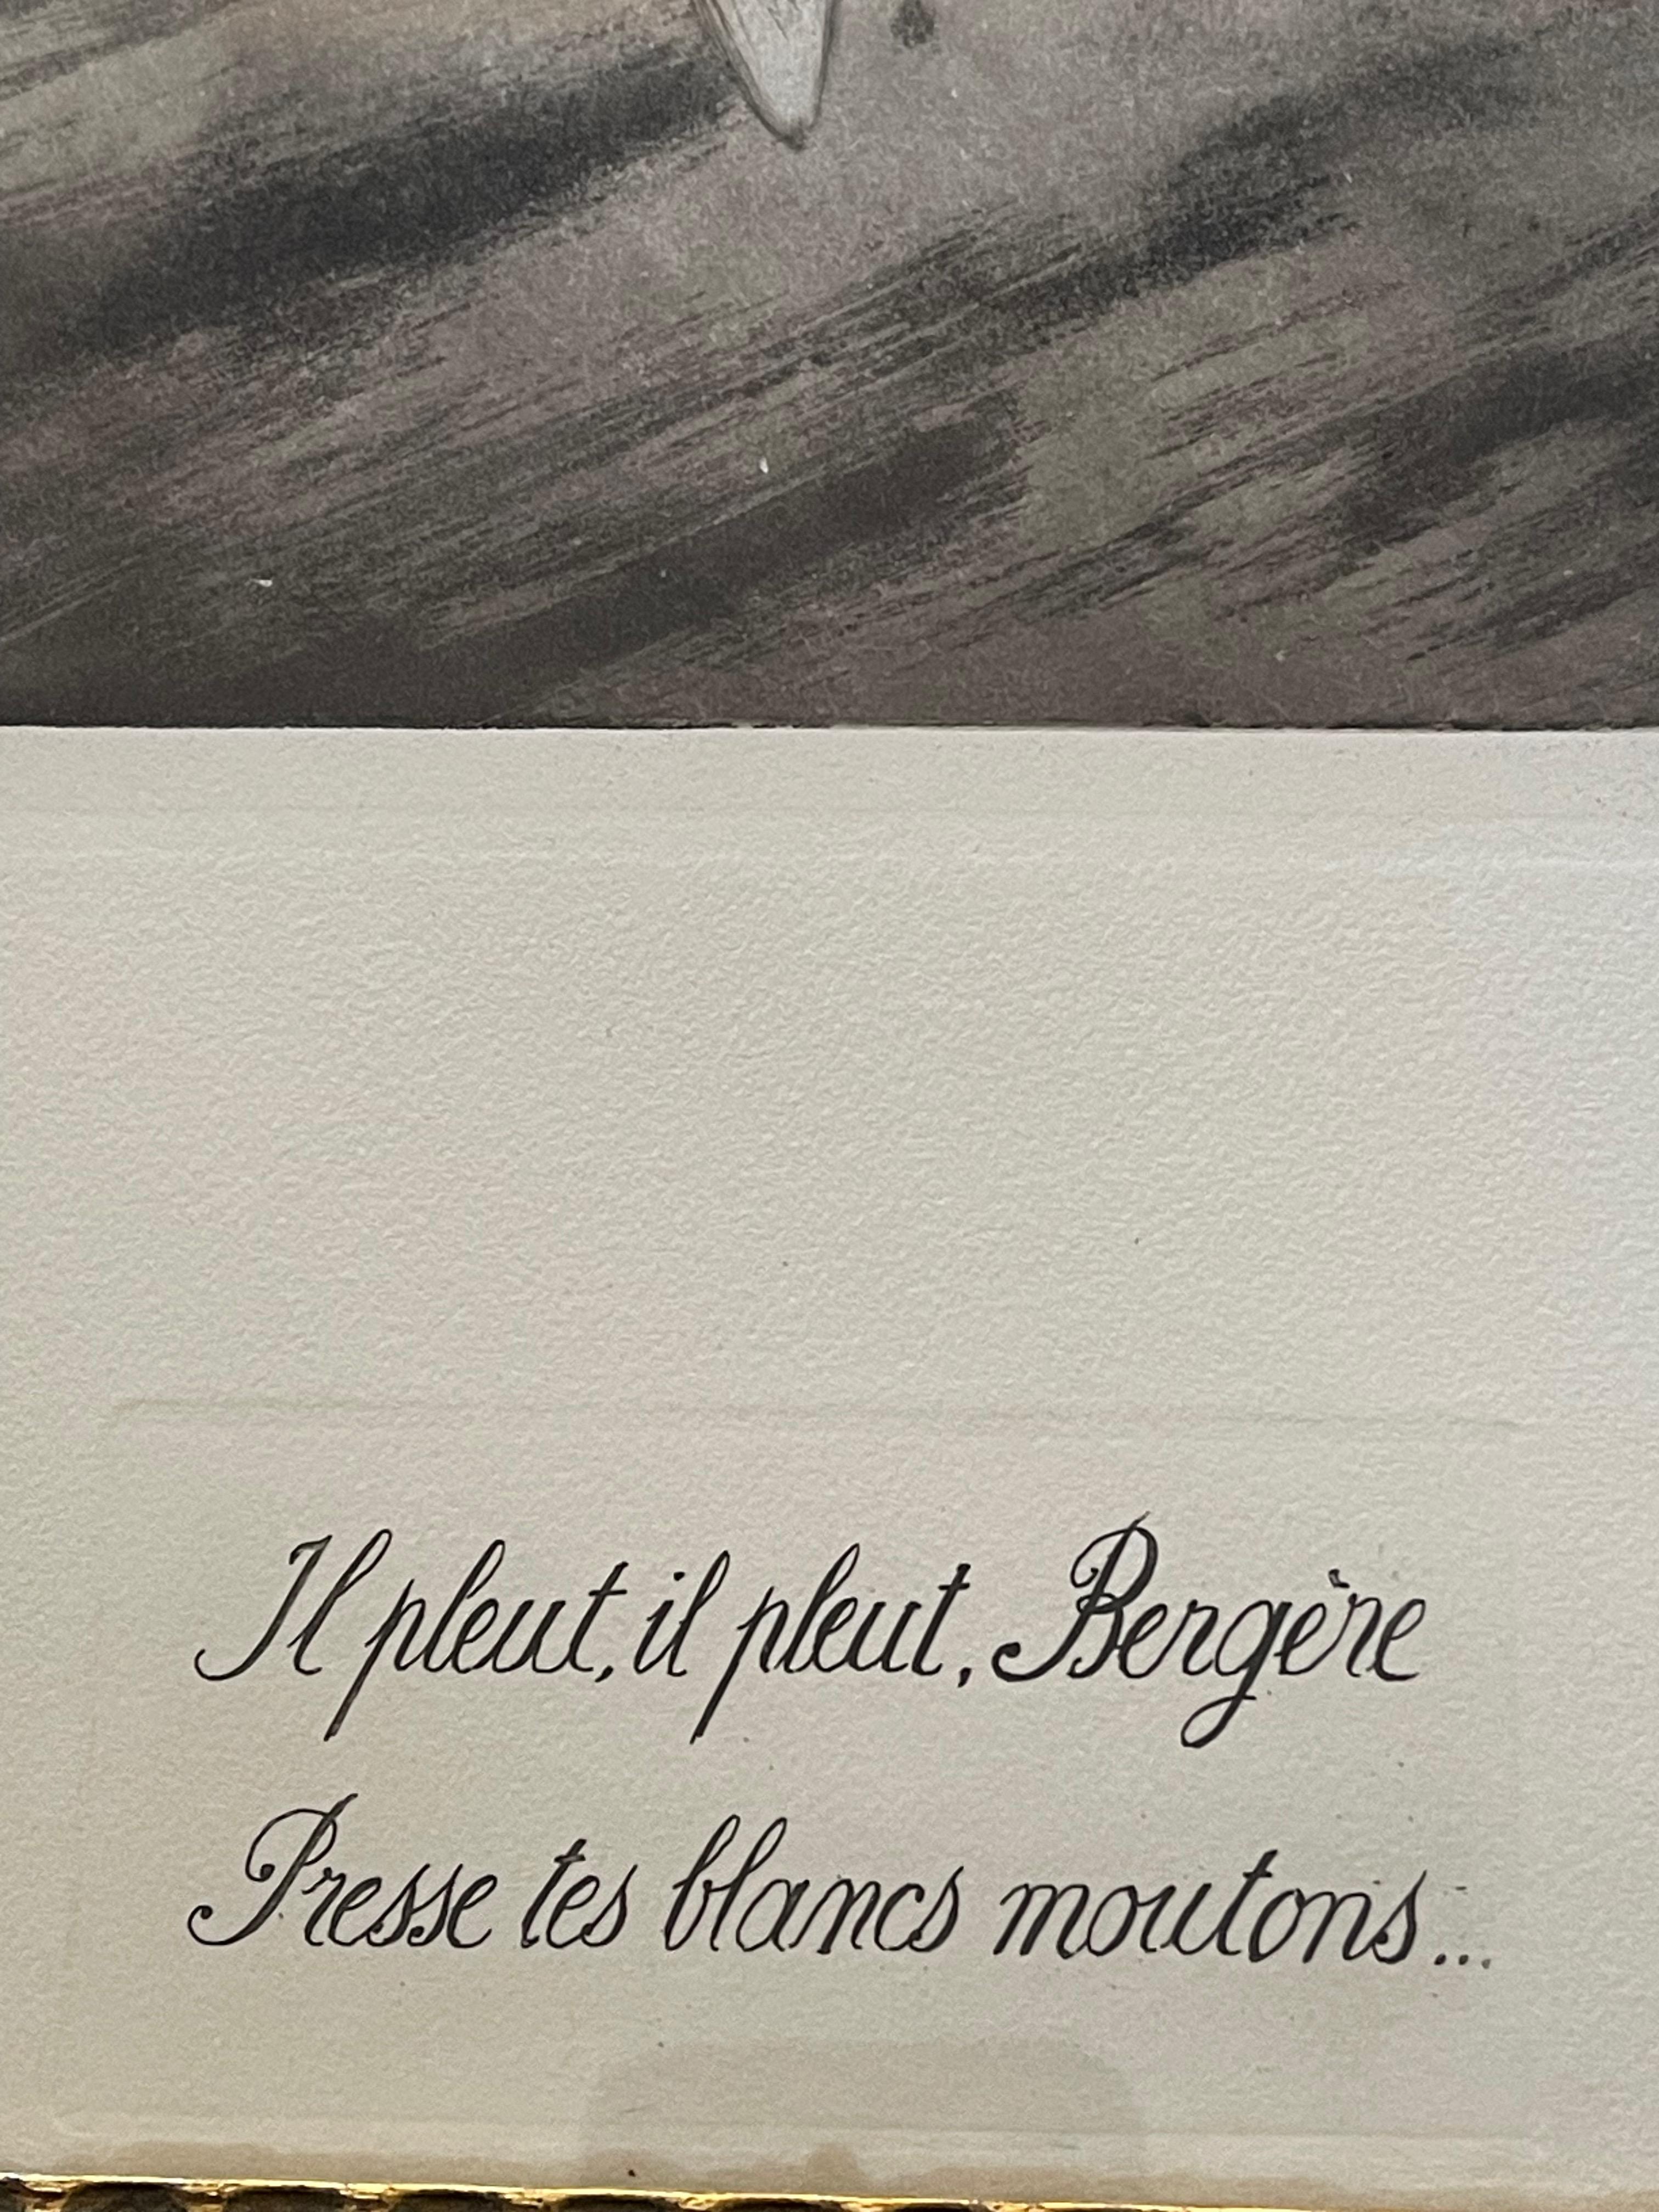 Il pleut, il pleut, Bergère
Presse tes blancs moutons...